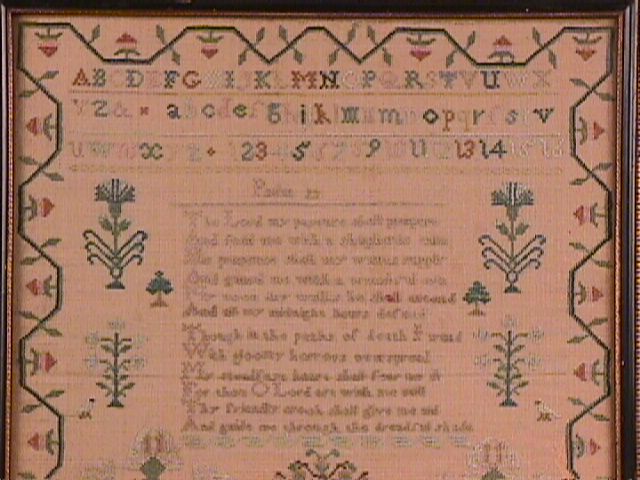 ABCDEFG IJKLMNOPQRSTVUWX
YZ& abcdef g i k l m n opqrſstv
uw x y z 1 2 3 4 5 6 7 8 9 10 11 12 13 14 15
Psalm 23
The Lord my pasture shall prepare
And feed me with a shepherds care
His presence shall my wants supply
And guard me with a watchful
My noon day walks he shall attend
And all my midnight hours defend
Though in the paths of death I tread
With gloomy horrors overspread
My steadfast heart shall fear no ill
For thou O Lord art with me still
Thy friendly crook shall give me aid
And guide me through the dreadful shade